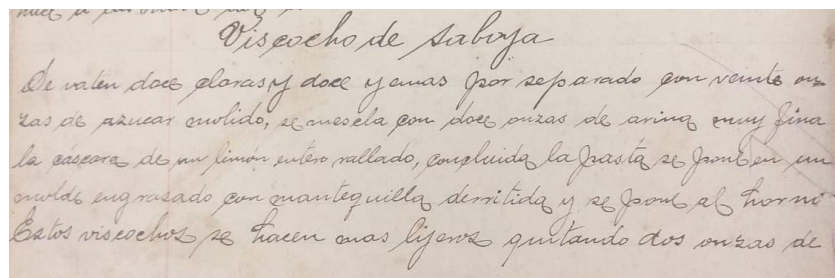 Viscocho de Saboya
Se vaten doce claras y doce yemas por separado con veinte on-
zas de azucar molido, se mescla con doce onzas de arina muy fina
la cáscara de un limón entero rallado, concluida la pasta se pone en un
molde engrasado con mantequilla derritida y se pone al horni
Estos viscochos se hacen mas lijeros quitando dos onzas de